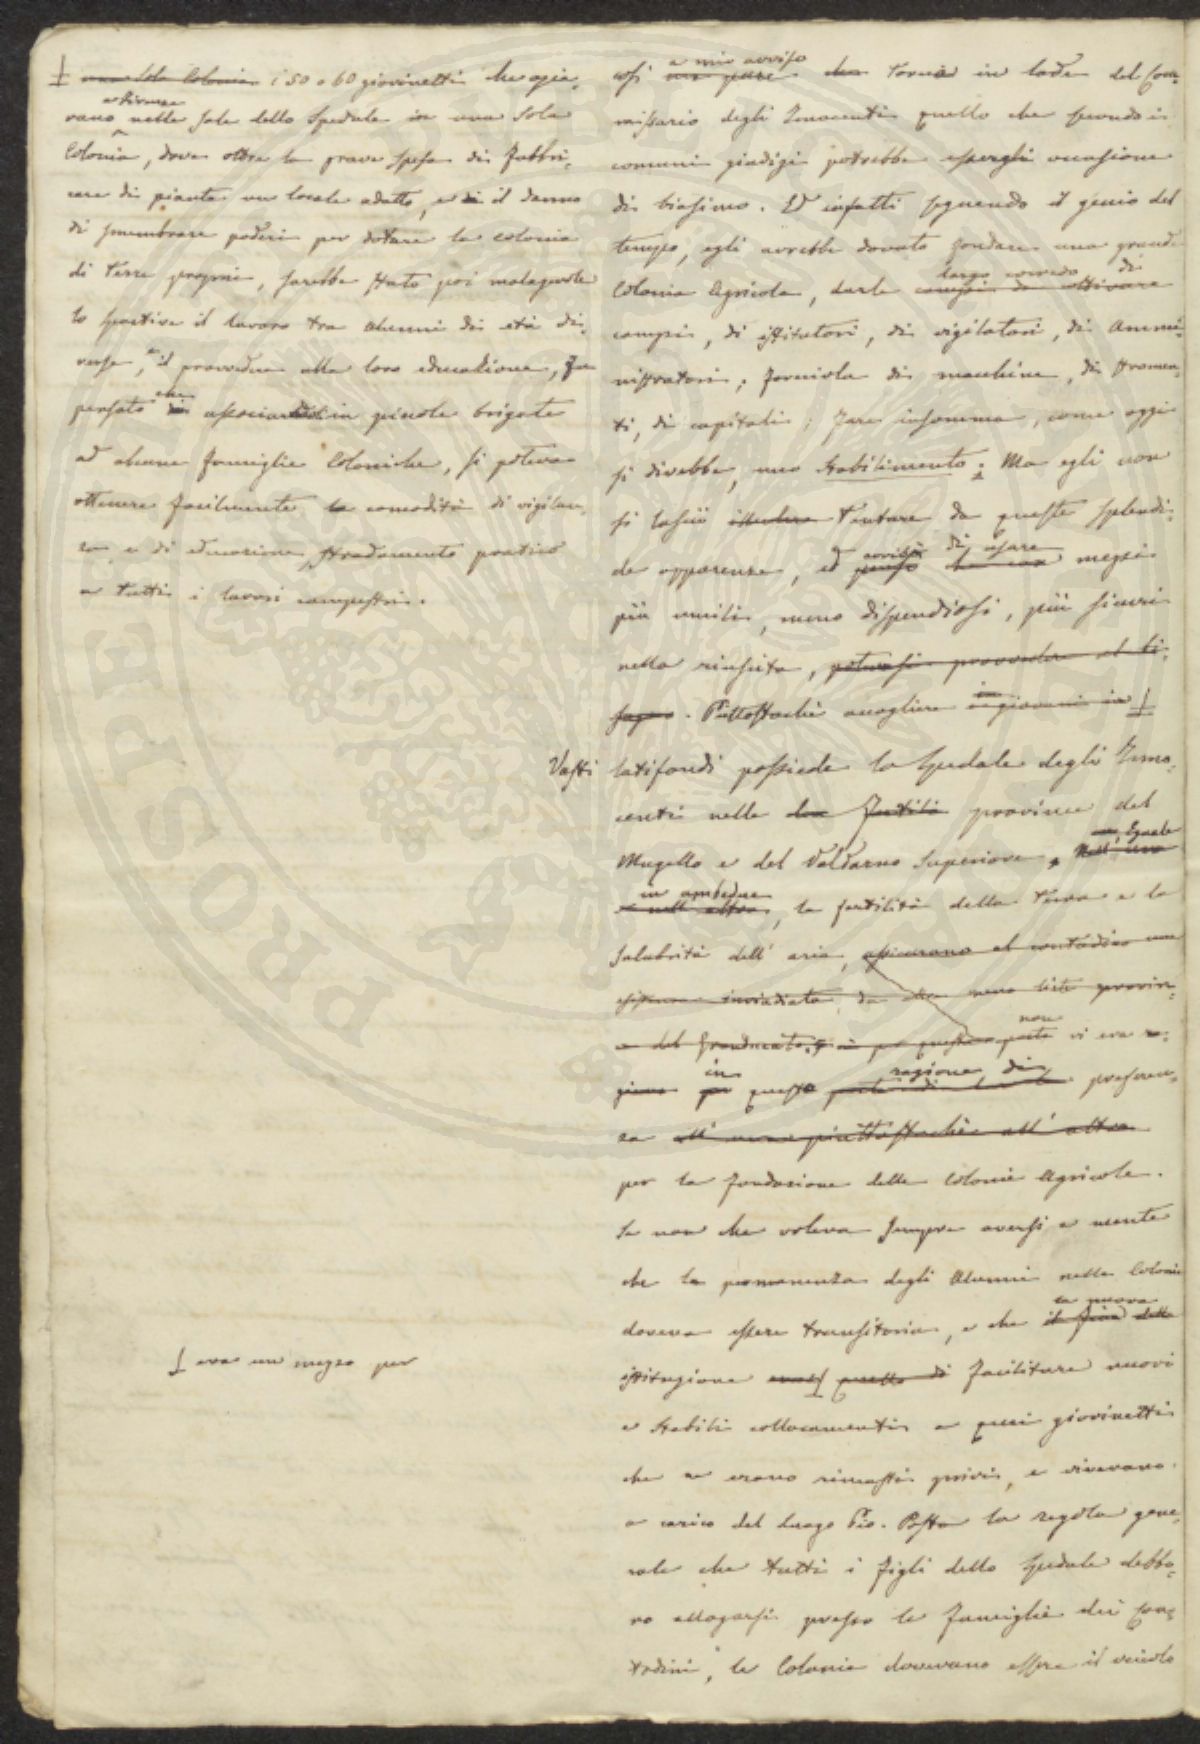 ⊥ una sola Colonia i 50 o 60 giovinetti che opia-
a Firenze
vano nelle sale dello Spedale in una sola
Colonia, dove oltre la grave spesa di fabbri-
care di pianta un locale adatto, e di il danno
di smembrare poderi per dotare la colonia
di terre proprie, sarebbe stato poi malagevole
lo spartire il lavoro tra alunni di età di-
verse, e il provvedere alla loro educazione, fu
pensato che di associandoli in piccole brigate
ad alcune famiglie Coloniche, si poteva
ottenere facilmente la comodità di vigilan-
za e di educazione, stradamento pratico
a tutti i lavori campestri.
⊥ era un mezzo per
a mio avviso
così che torni in lode del Com-
missario degli Innocenti quello che secondo i
comuni giudizi potrebbe essergli occasione
di biasimo. Ed infatti seguendo il genio del
tempo, egli avrebbe dovuto fondare una grande
largo corredo di
Colonia Agricola, darle campi da coltivare
campi, di istitutori, di vigilatori, di Ammi-
nistratori, fornirla di macchine, di stromen-
ti, di capitali; fare insomma, come oggi
si direbbe, uno Stabilimento. Ma egli non
si lasciò illudere tentare da queste splendi-
avvisò di usare
de apparenze, ed pensò che con mezzi
più umili, meno dispendiosi, più sicuri
nella riuscita, potevasi provvedere al bi-
sogno. Piuttostochè accogliere i giovani in ⊥
Vasti latifondi possiede lo Spedale degli Inno-
centi nelle due fertili province del
Mugello e del Valdarno Superiore. Nell'una
Eguale
in ambedue
e nell'altra, la fertilità della terra e la
salubrità dell'aria, assicurano al contadino una
esistenza invidiata da meno liete provin-
non
e del Granducato, e per questa parte vi era ra-
in ragione di
gione per questo parte di preferen-
za all'una piuttostochè all'altra
per la fondazione delle Colonie Agricole.
Se non che voleva sempre aversi a mente
che la permanenza degli Alunni nelle Colonie
la nuova
doveva essere transitoria, e che il fine della
istituzione era ⊥ quello di facilitare nuovi
e stabili collocamenti a quei giovinetti
che ne erano rimasti privi, e vivevano
a carico del Luogo Pio. Posta la regola gene-
rale che tutti i figli dello Spedale debba-
no allogarsi presso le famiglie dei Con-
tadini, le Colonie dovevano essere il veicolo